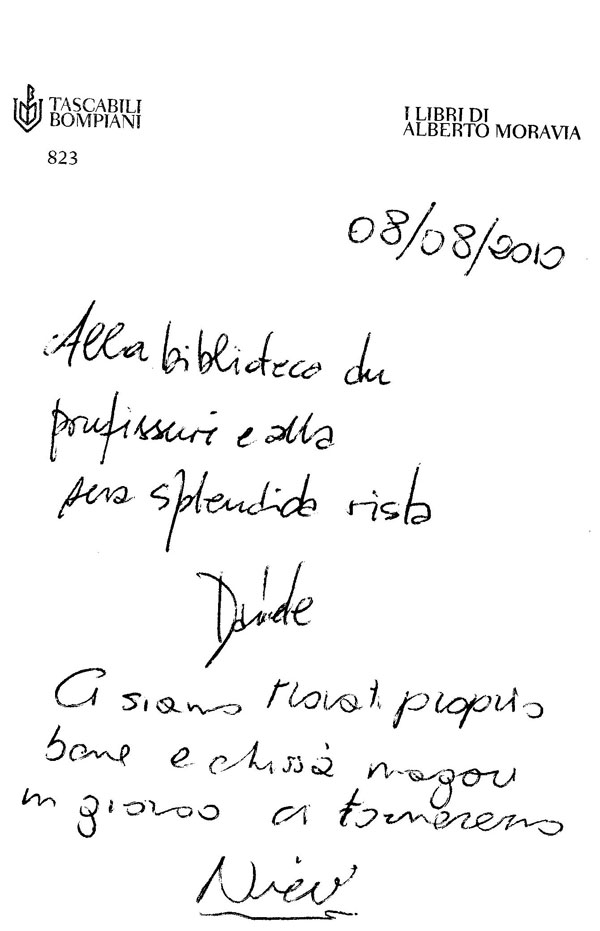 TASCABILI
BOMPIANI
823
I LIBRI DI
ALBERTO MORAVIA
08/08/2010
Alla biblioteca du
prufissuri e alla
sua splendida vista
Davide
Ci siamo trovati proprio
bene e chissà magari
un giorno ci torneremo